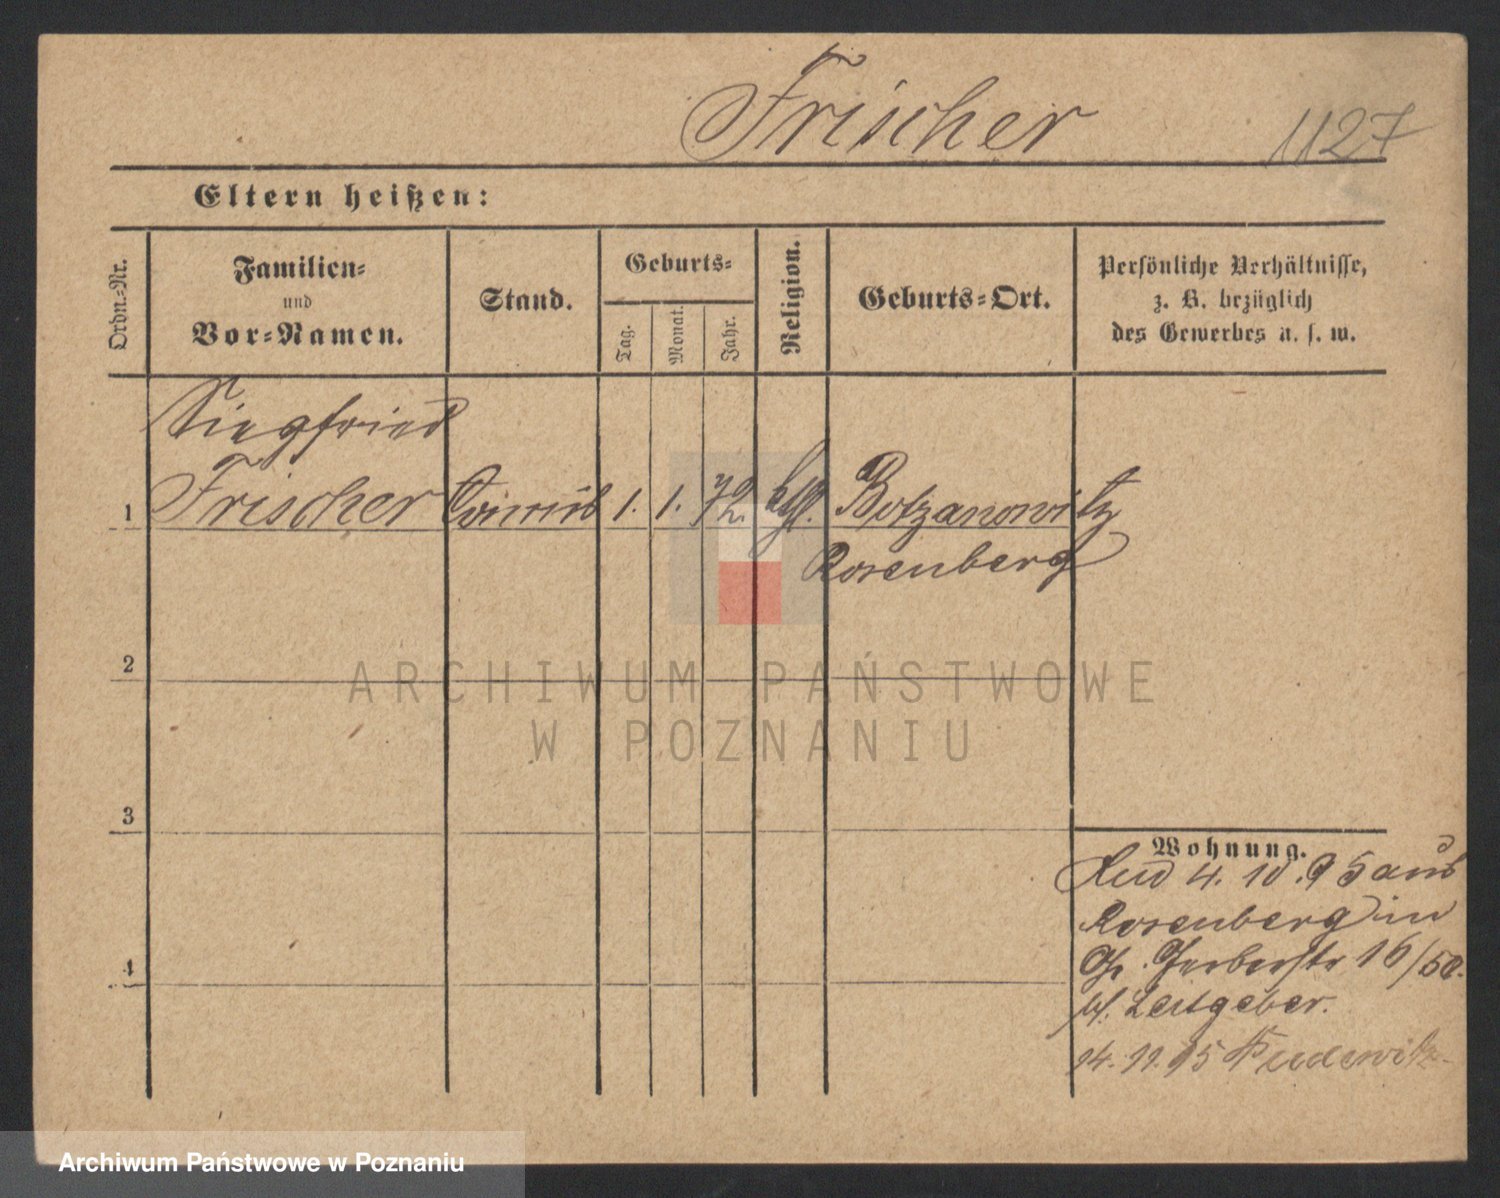 Frischer
1127
Eltern heißen:
Ordn.-Nr.
Familien-
und
Vor-Namen.
Stand.
Geburts-
Tag.
Monat.
Jahr.
Religion.
Geburts-Ort.
Persönliche Verhältnisse,
z. B. bezüglich
des Gewerbes u. s. w.
Siegfried
1 Frischer 1. 1. 72. Botzanowitz
Rosenberg
2
3
4
Wohnung.
4. 10. 95 aus
Rosenberg in
Gr. Gerberstr 16/50.
Leitgeber.
14. 11. 95 Pudewitz
ARCHIWUM PAŃSTWOWE
W POZNANIU
Archiwum Państwowe w Poznaniu